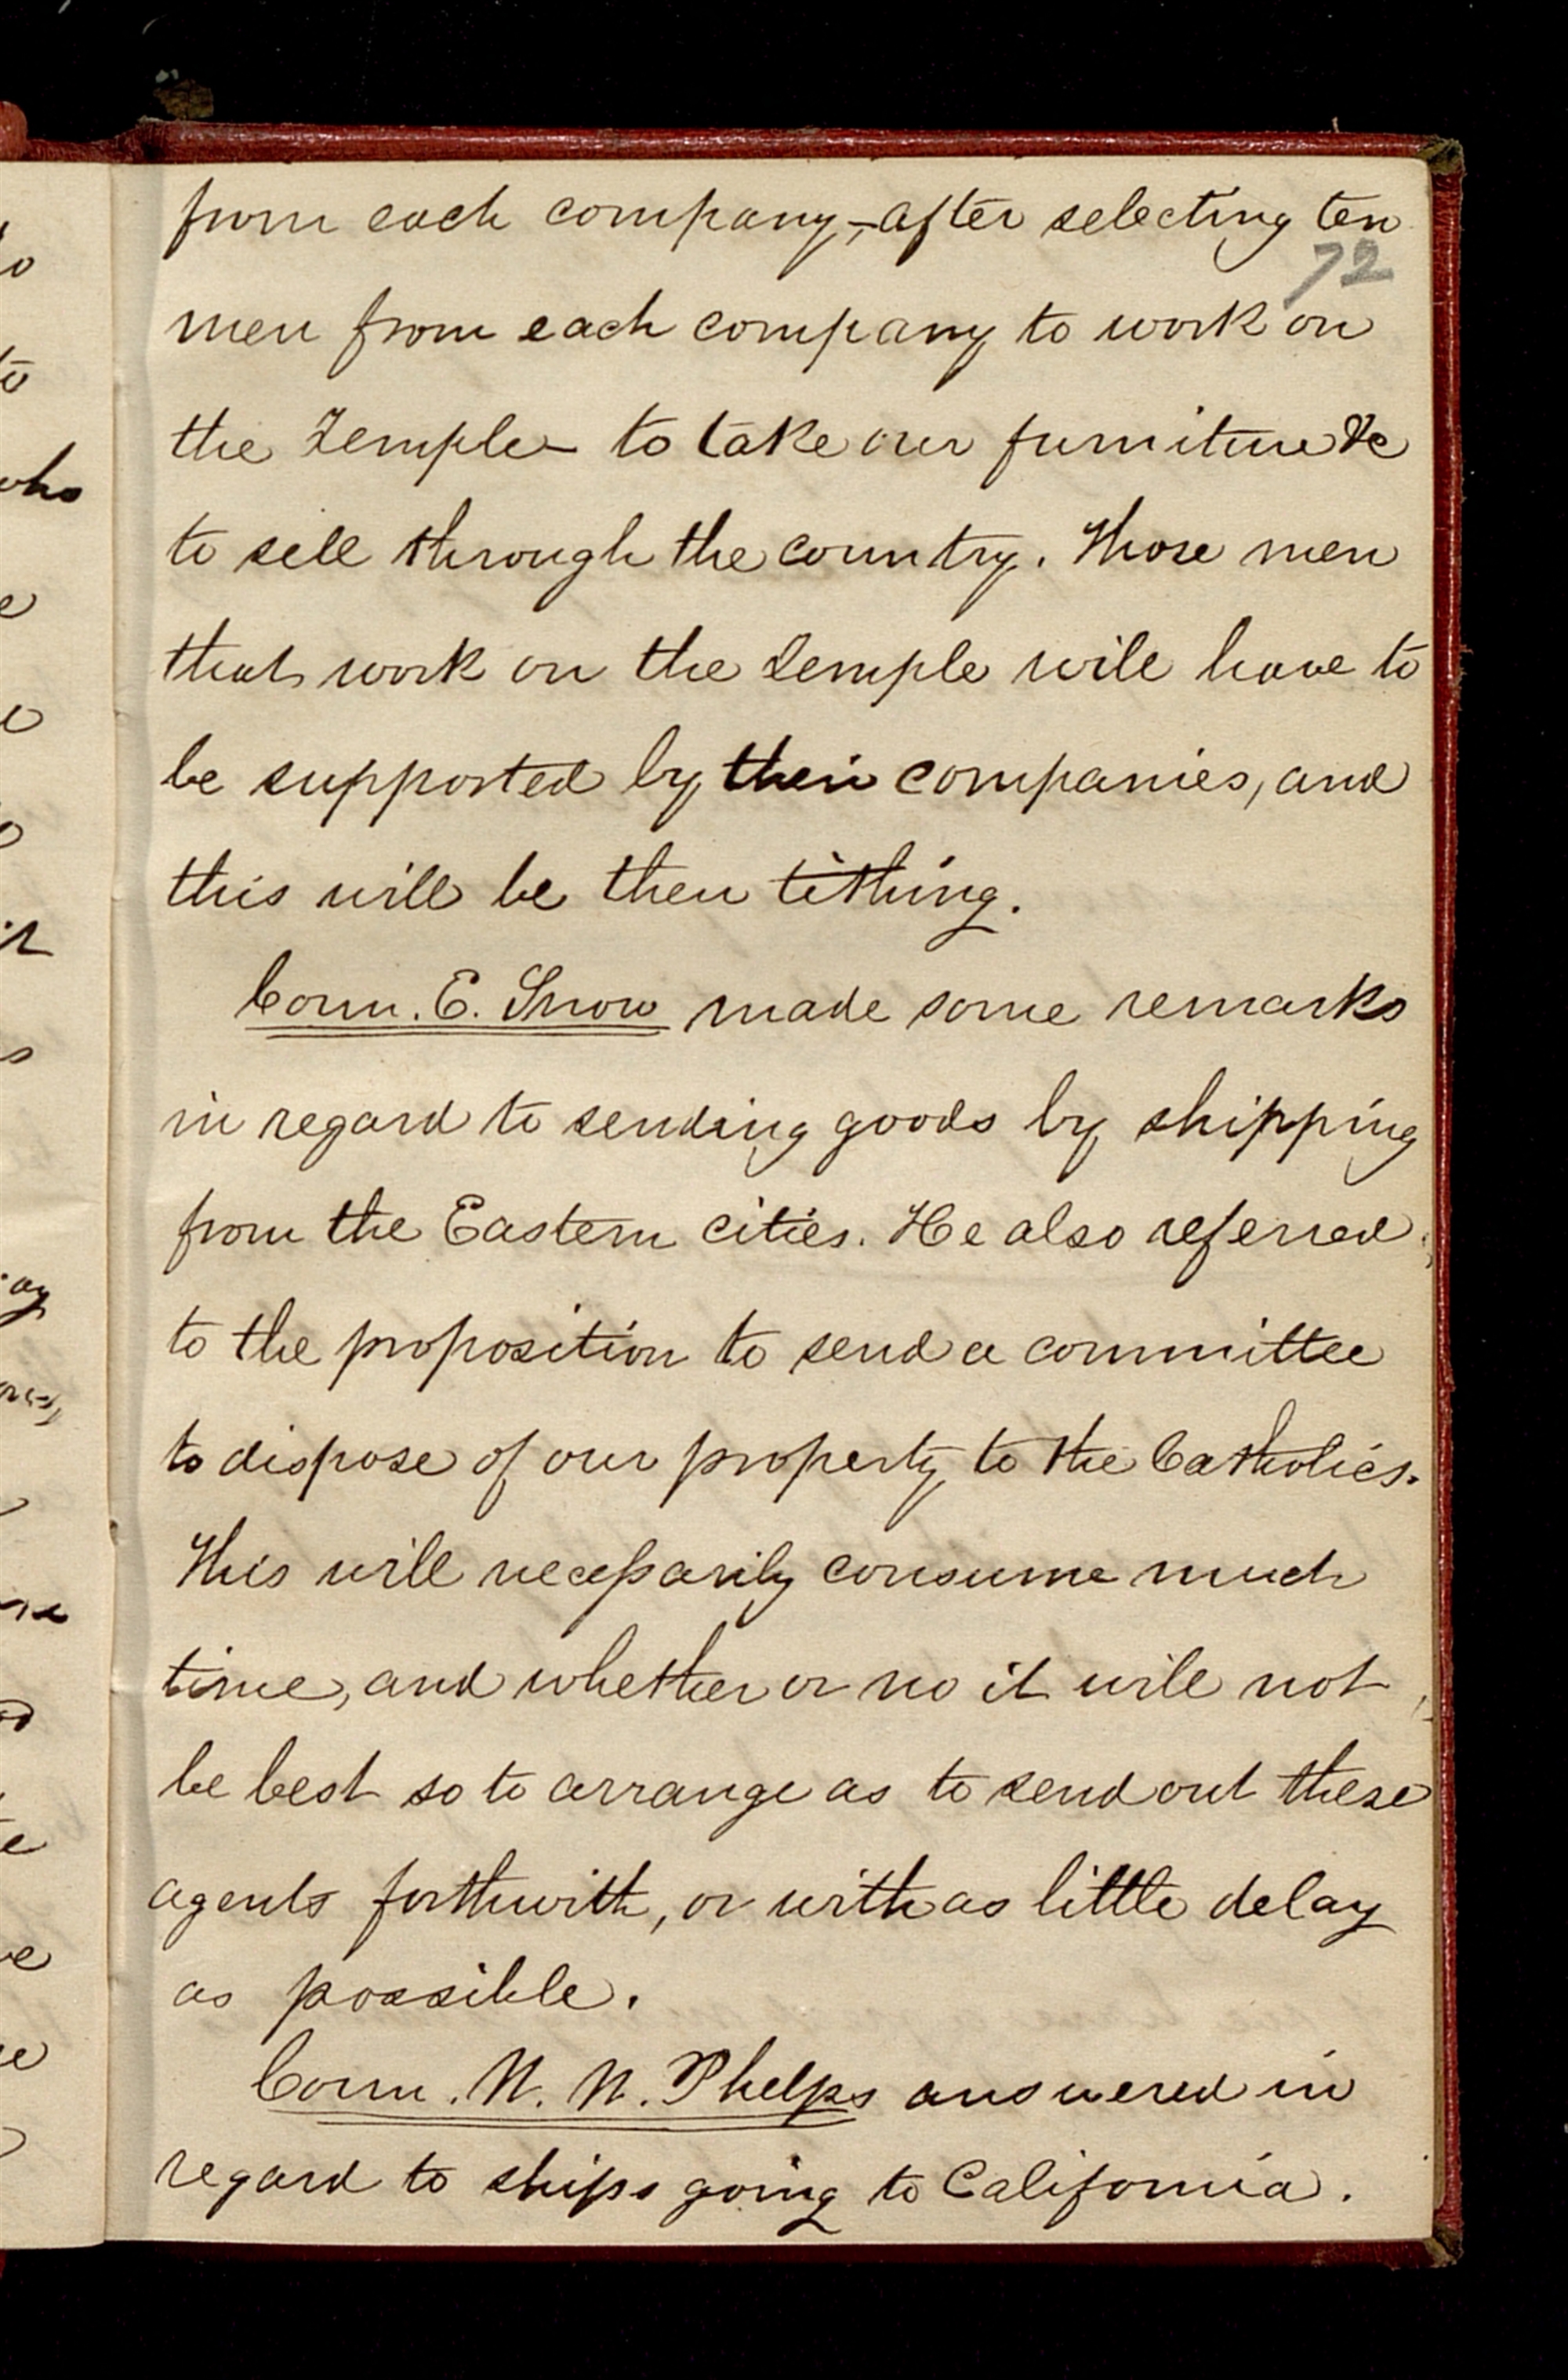 from each company,—after selecting ten
72
men from each company to work on
the Temple— to take our furniture &c
to sell through the country. Those men
that work on the Temple will have to
be supported by their companies, and
this will be then tithing.
Coun. E. Snow made some remarks
in regard to sending goods by shipping
from the Eastern cities. He also referred
to the proposition to send a committee
to dispose of our property to the Catholics.
This will necessarily consume much
time, and whether or no it will not
be best so to arrange as to send out these
agents forthwith, or with as little delay
as possible.
Coun. W. W. Phelps answered in
regard to ships going to California.